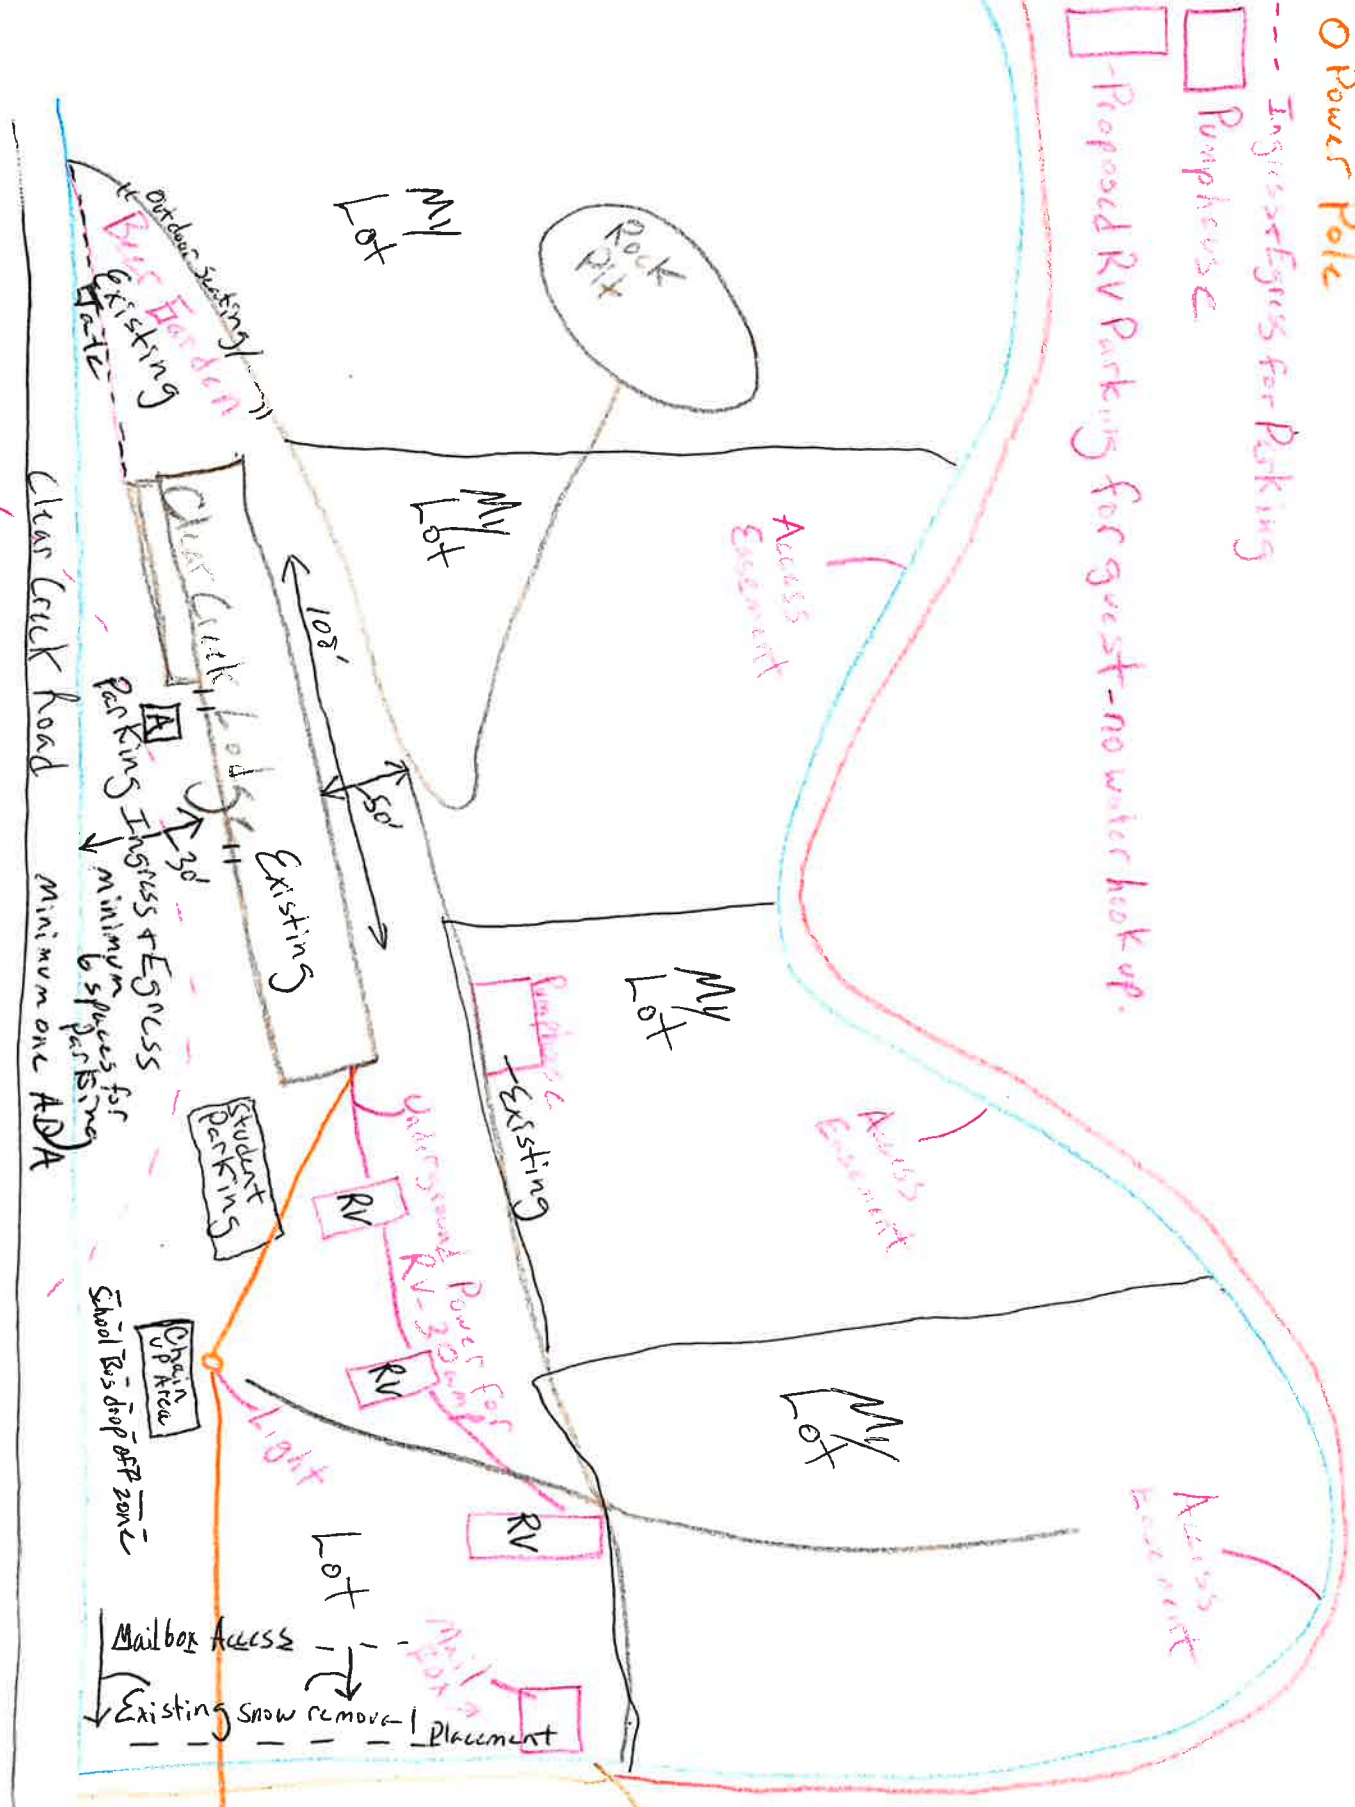 O Power Pole
--- Ingress + Egress for Parking
Pumphouse
-Proposed RV Parking for guest - no water hook up.
My
Lot
Rock
Pit
"Outdoor Seating/
"
Beer Garden
Existing
Gate
My
Lot
Access
Easement
Clear Creek Lodge
Existing
108'
50'
30'
A
Parking Ingress + Egress
minimum
6 spaces for
Parking
Clear Creek Road
Minimum one ADA
My
Lot
Pumphouse
-Existing
Access
Easement
Underground Power for
RV-30amp
RV
RV
RV
Student
Parking
Chain
up Area
School Bus drop off zone
Light
My
Lot
Access
Easement
Lot
Mailbox Access
Existing snow removal Placement
Mail
Box